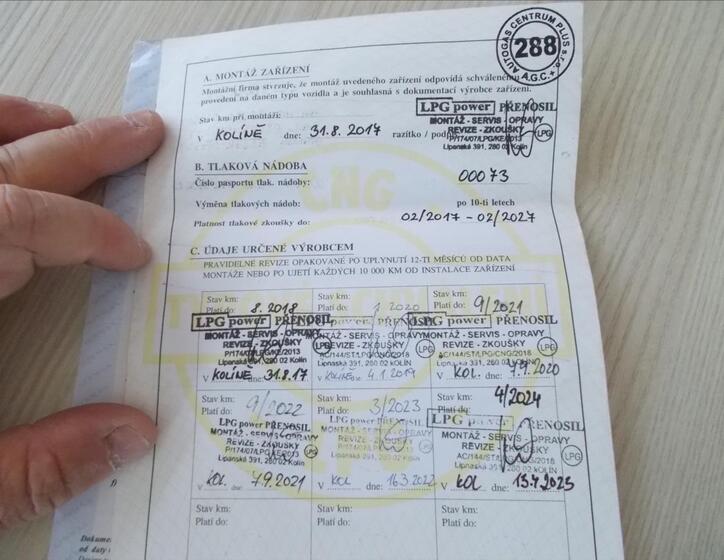 AUTOGAS CENTRUM PLUS s.r.o.
288
A.G.C.+
A. MONTÁŽ ZAŘÍZENÍ
Montážní firma stvrzuje, že montáž uvedeného zařízení odpovídá schválenému
provedení na daném typu vozidla a je souhlasná s dokumentací výrobce zařízení.
Stav km při montáži:
LPG power PŘENOSIL
MONTÁŽ - SERVIS - OPRAVY
V KOLÍNĚ dne: 31.8.2017 razítko / podpis
REVIZE - ZKOUŠKY
P/174/07/LPG/KE/2013
LPG
Lipanská 391, 280 02 Kolín
B. TLAKOVÁ NÁDOBA
Číslo pasportu tlak. nádoby: 00073
Výměna tlakových nádob: po 10-ti letech
Platnost tlakové zkoušky do: 02/2017 - 02/2027
C. ÚDAJE URČENÉ VÝROBCEM
PRAVIDELNÉ REVIZE OPAKOVANÉ PO UPLYNUTÍ 12-TI MĚSÍCŮ OD DATA
MONTÁŽE NEBO PO UJETÍ KAŽDÝCH 10 000 KM OD INSTALACE ZAŘÍZENÍ
Stav km: Stav km: Stav km:
Platí do: 8.2018 Platí do: 1 2020 Platí do: 9/2021
LPG power PŘENOSIL power PŘENOSIL LPG power PŘENOSIL
MONTÁŽ - SERVIS - OPRAVY MONTÁŽ - SERVIS - OPRAVY MONTÁŽ - SERVIS - OPRAVY
REVIZE - ZKOUŠKY LPG REVIZE - ZKOUŠKY LPG REVIZE - ZKOUŠKY LPG
P/174/07/LPG/KE/2013 AC/144/ST/LPG/CNG/2018 AC/144/ST/LPG/CNG/2018
Lipanská 391, 280 02 Kolín Lipanská 391, 280 02 KOLÍN Lipanská 391, 280 02 KOLÍN
V KOLÍNĚ 31.8.17 V KOLÍNĚ dne 4.1.2019 V KOL. dne: 7.9.2020
Stav km: Stav km: 4/2024
Platí do: 9/2022 Platí do: 3/2023 Platí do:
LPG power PŘENOSIL LPG power PŘENOSIL LPG power PŘENOSIL
MONTÁŽ - SERVIS - OPRAVY MONTÁŽ - SERVIS - OPRAVY MONTÁŽ - SERVIS - OPRAVY
REVIZE - ZKOUŠKY LPG REVIZE - ZKOUŠKY LPG REVIZE - ZKOUŠKY LPG
Lipanská 391, 280 02 Kolín Lipanská 391, 280 02 KOLÍN Lipanská 391, 280 02 KOLÍN
V KOL. dne: 7.9.2021 V KOL dne: 16.3.2022 V KOL dne: 13.4.2023
Stav km: Stav km: Stav km:
Platí do: Platí do: Platí do:
f)
Dokumen
od daty